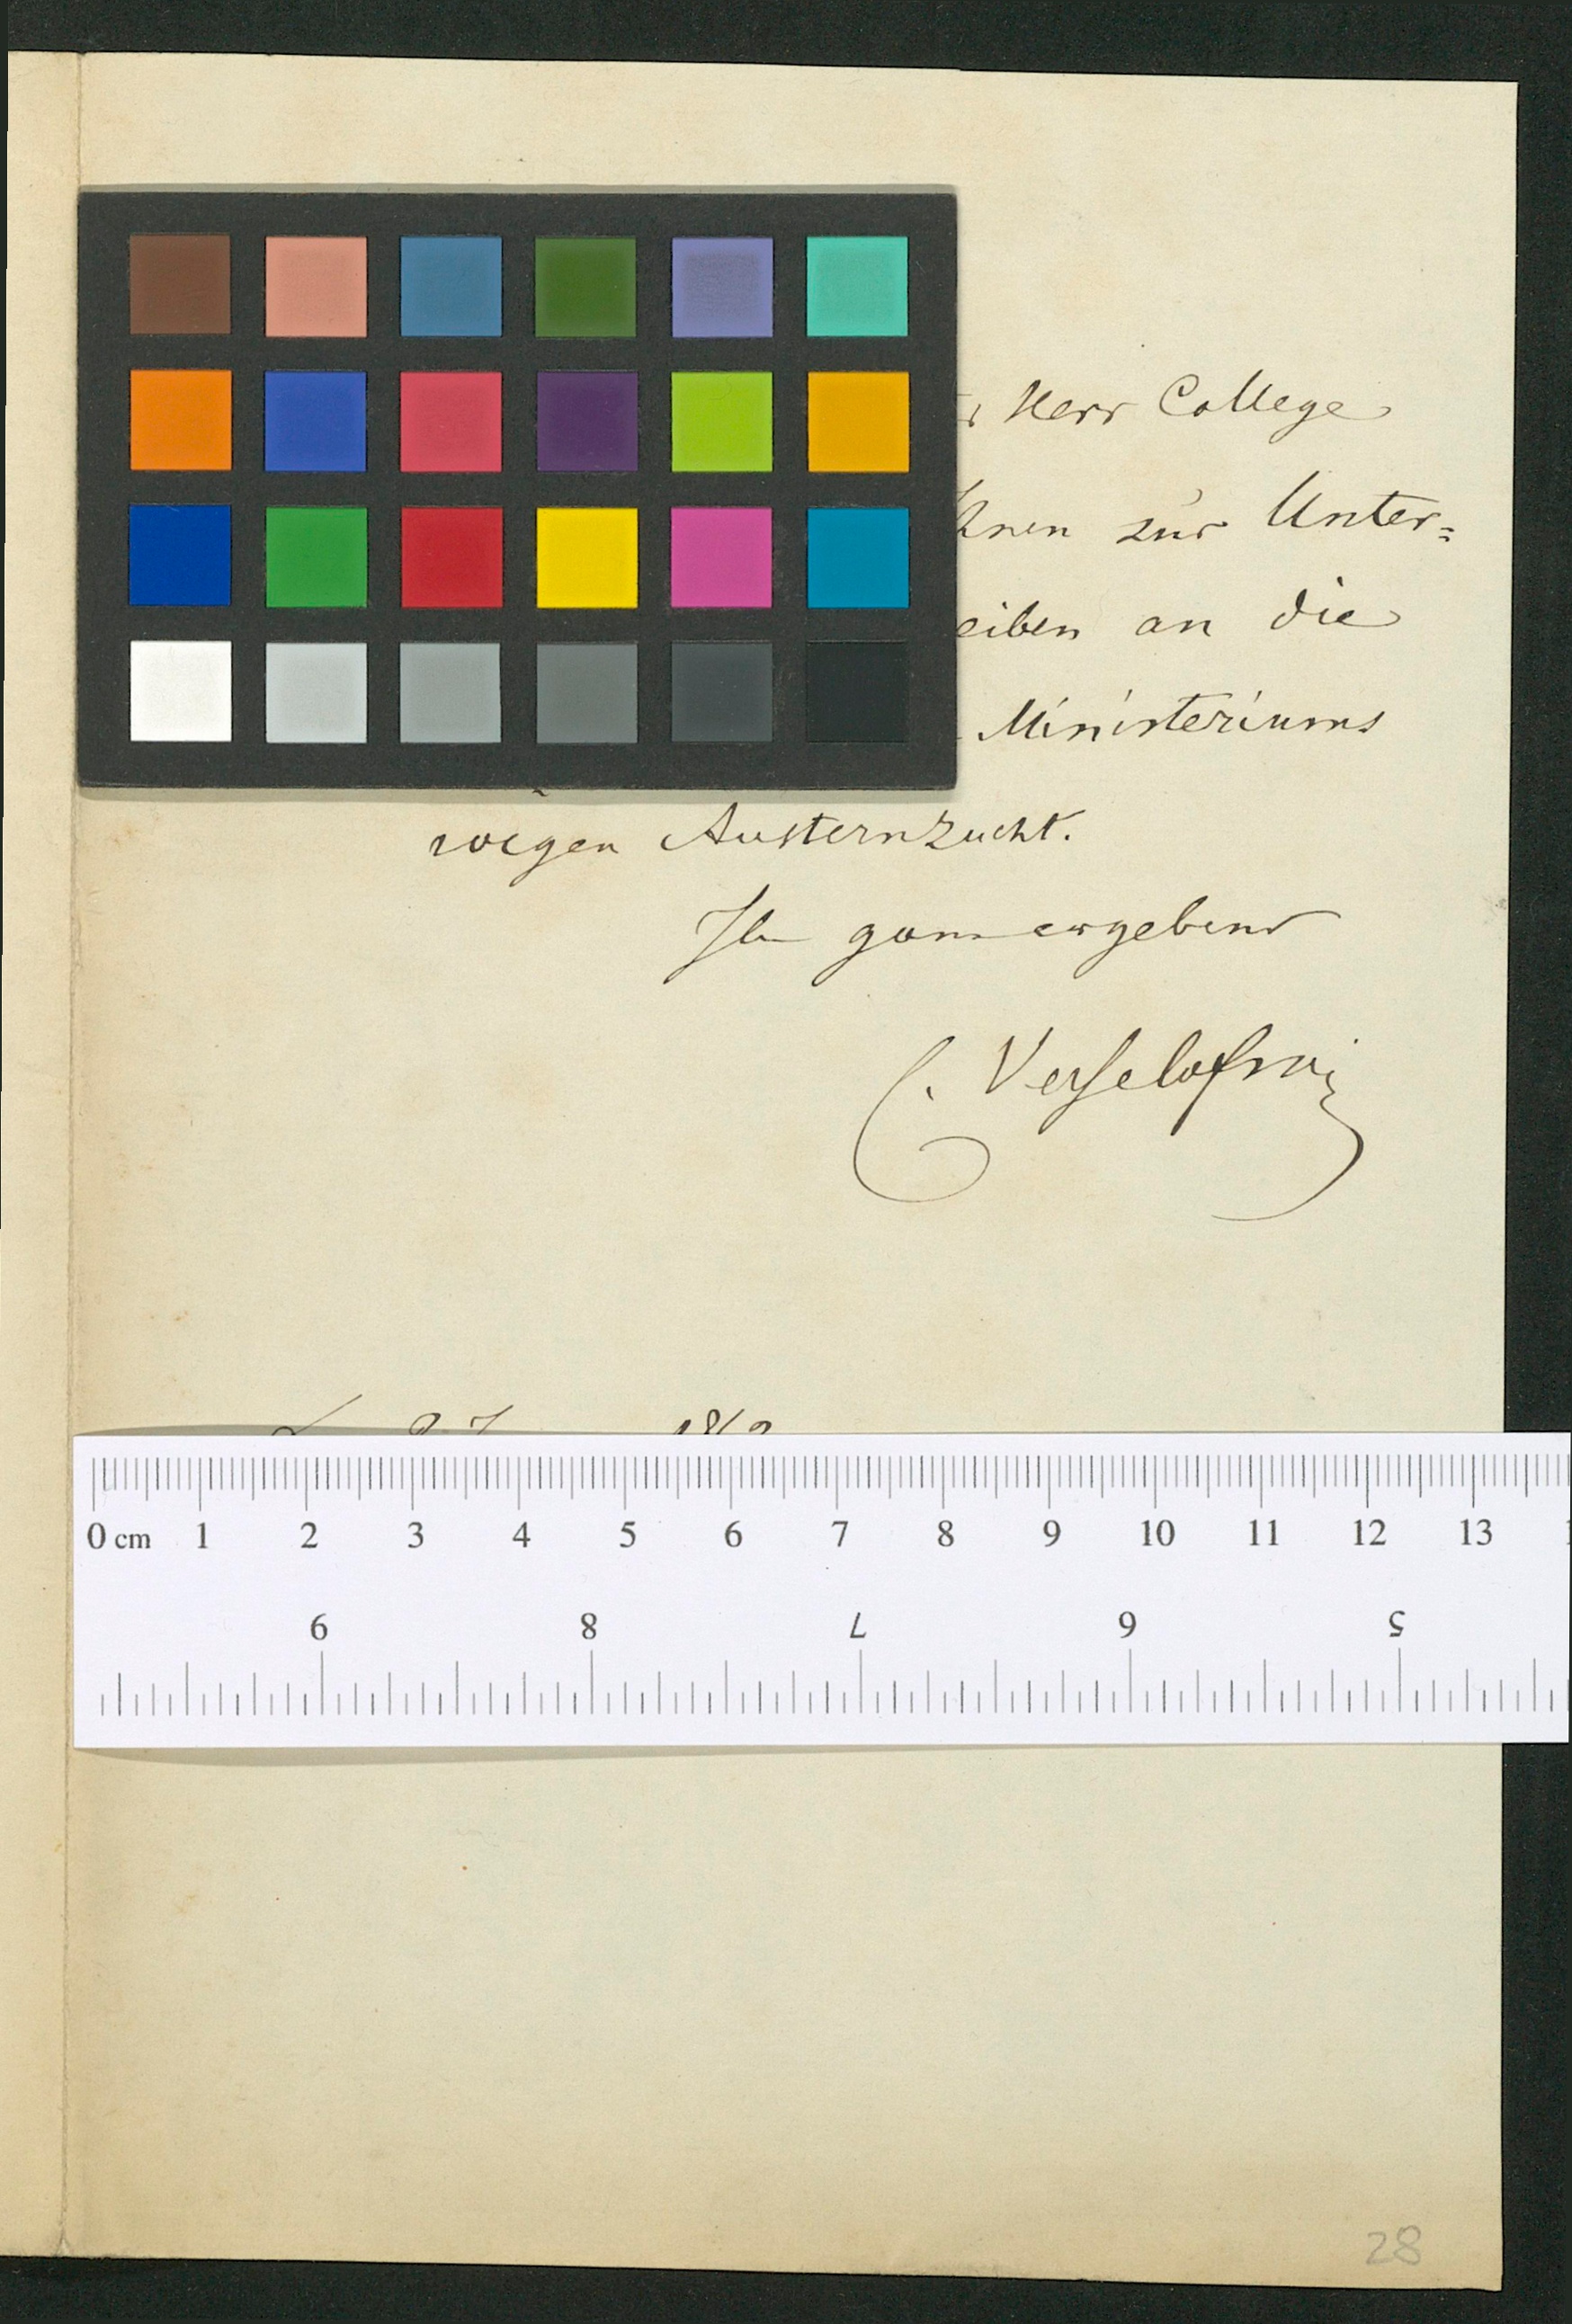 Herr College
zur Unter=
eiben an die
Ministeriums
wegen Austernzucht.
Ihr ganz ergebenst
C.
0 cm 1 2 3 4 5 6 7 8 9 10 11 12 13
9 8 7 6 5
28